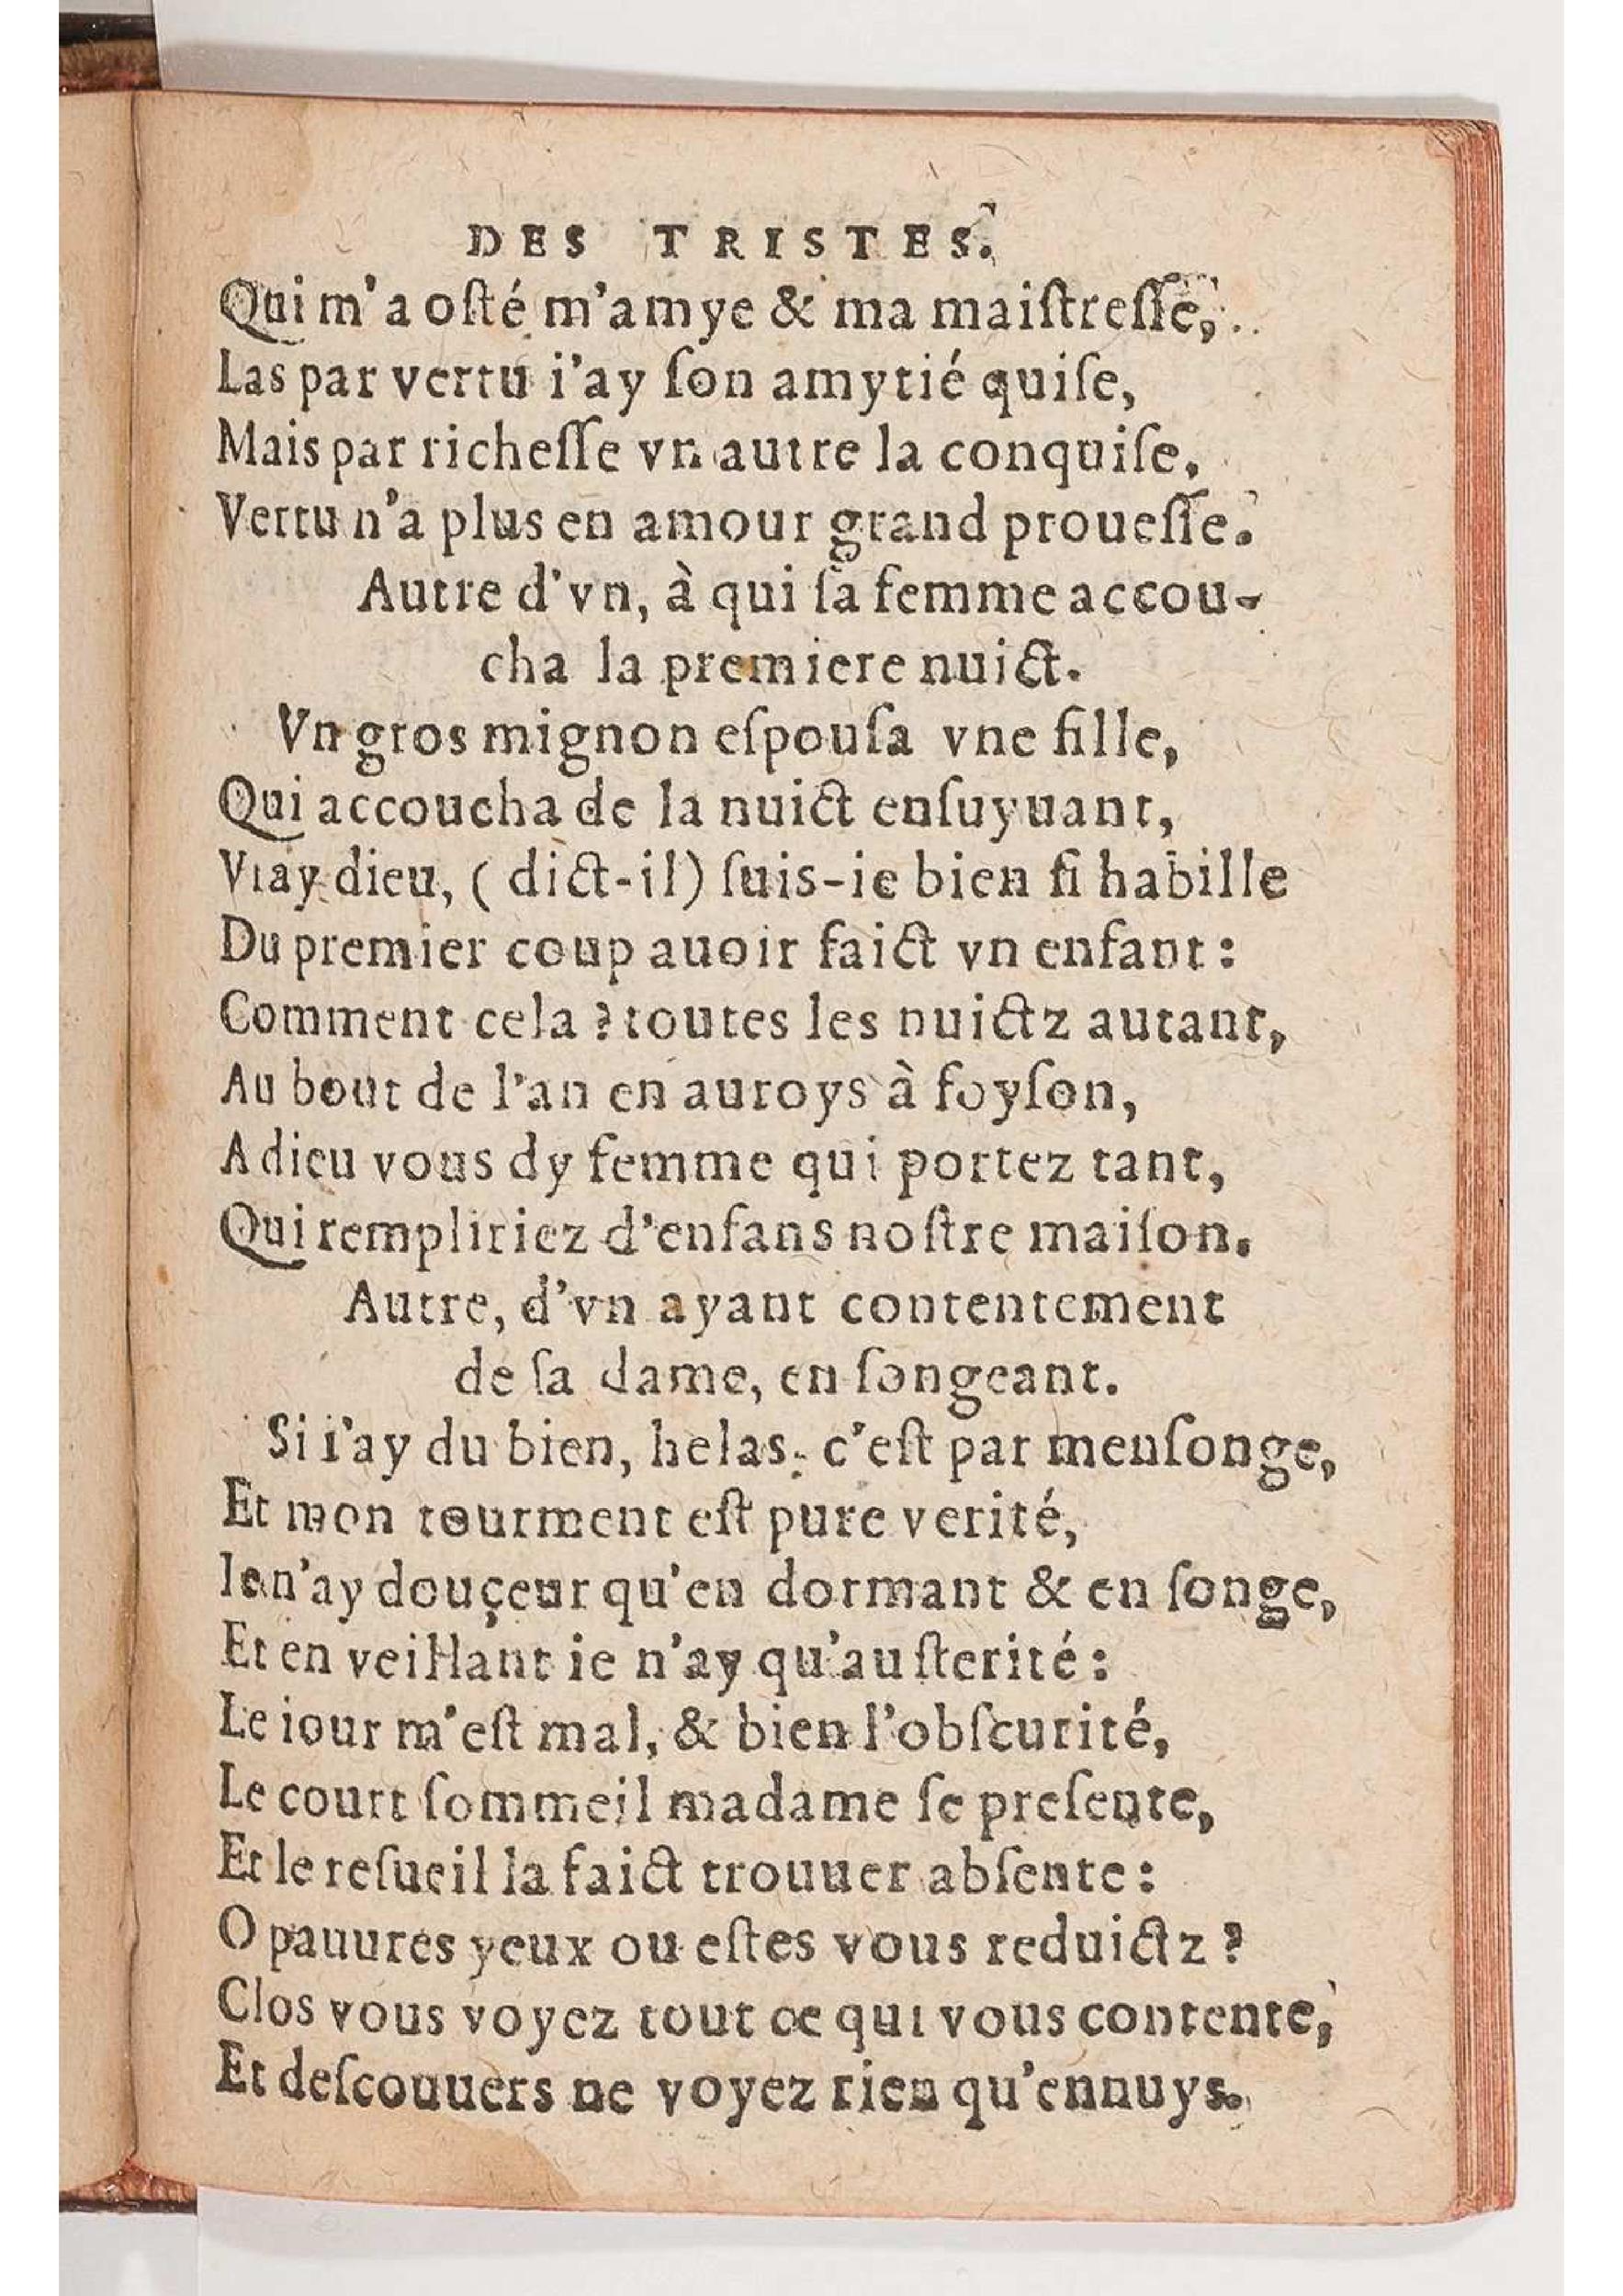 DES TRISTES.
Qui m'a osté m'amye & ma maistresse,
Las par vertu i'ay ſon amytié quiſe,
Mais par richeſſe vn autre la conquiſe,
Vertu n'a plus en amour grand proueſſe.
Autre d'vn, à qui ſa femme accou-
cha la premiere nuict.
Vn gros mignon eſpouſa vne fille,
Qui accoucha de la nuict enſuyuant,
Vray dieu, ( dict-il) ſuis-ie bien ſi habille
Du premier coup auoir faict vn enfant :
Comment cela ? toutes les nuictz autant,
Au bout de l'an en auroys à foyſon,
Adieu vous dy femme qui portez tant,
Qui rempliriez d'enfans noſtre maiſon.
Autre, d'vn ayant contentement
de ſa dame, en ſongeant.
Si i'ay du bien, helas, c'eſt par menſonge,
Et mon tourment eſt pure verité,
Ie n'ay douçeur qu'en dormant & en ſonge,
Et en veillant ie n'ay qu'auſterité :
Le iour m'eſt mal, & bien l'obſcurité,
Le court ſommeil madame ſe preſente,
Et le reſueil la faict trouuer abſente :
O pauures yeux ou eſtes vous reduictz ?
Clos vous voyez tout ce qui vous contente,
Et deſcouuers ne voyez rien qu'ennuys.